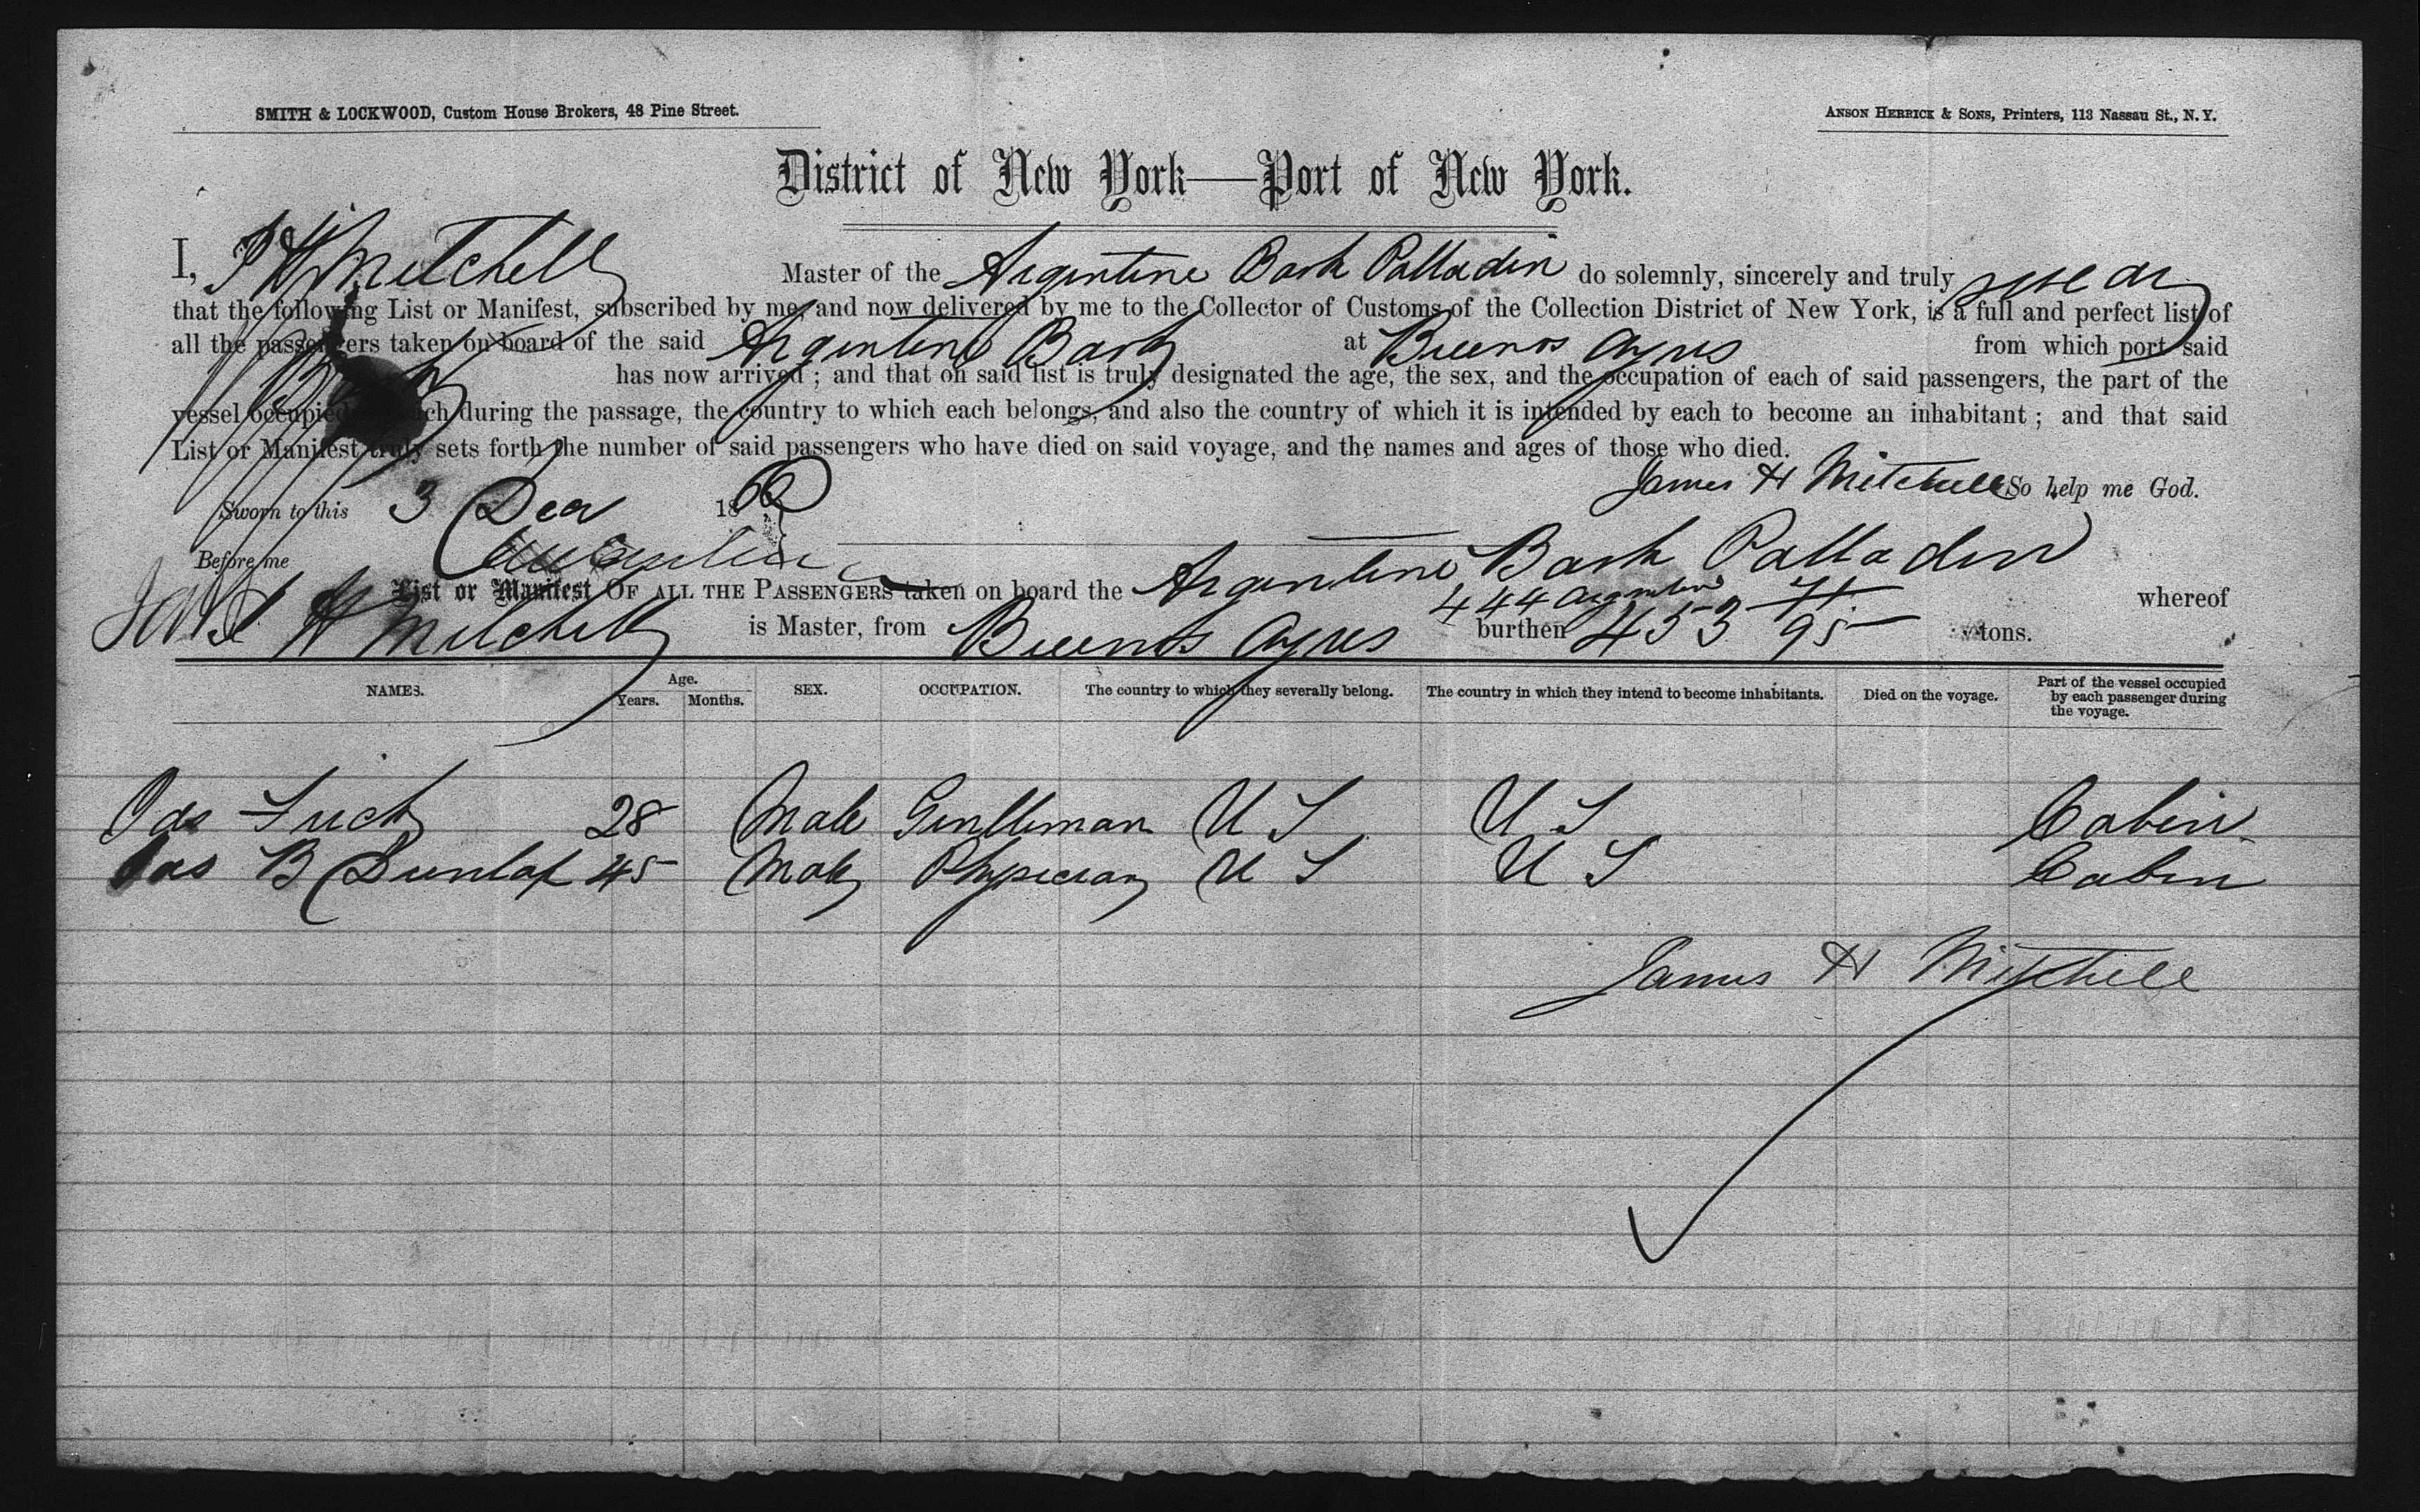 SMITH & LOCKWOOD, Custom House Brokers, 48 Pine Street.
ANSON HERRICK & SONS, Printers, 113 Nassau St., N. Y.
District of New York—Port of New York.
I, J H Mitchell Master of the Argentine Bark Palladin do solemnly, sincerely and truly swear
that the following List or Manifest, subscribed by me, and now delivered by me to the Collector of Customs of the Collection District of New York, is a full and perfect list of
all the passengers taken on board of the said Argentine Bark at Buenos Ayres from which port said
Bark has now arrived; and that on said list is truly designated the age, the sex, and the occupation of each of said passengers, the part of the
vessel occupied each during the passage, the country to which each belongs, and also the country of which it is intended by each to become an inhabitant; and that said
List or Manifest truly sets forth the number of said passengers who have died on said voyage, and the names and ages of those who died.
James H Mitchell So help me God.
Sworn to this 3 Dec 1860
Before me
List or Manifest OF ALL THE PASSENGERS taken on board the Argentine Bark Palladin whereof
444 Argentine 71
H Mitchell is Master, from Buenos Ayres burthen 453 95 tons.
NAMES. Age. Years. Months. SEX. OCCUPATION. The country to which they severally belong. The country in which they intend to become inhabitants. Died on the voyage. Part of the vessel occupied by each passenger during the voyage.
28 Male Gentleman U S U S Cabin
Jas B Dunlap 45 Male Physician U S U S Cabin
James H Mitchell